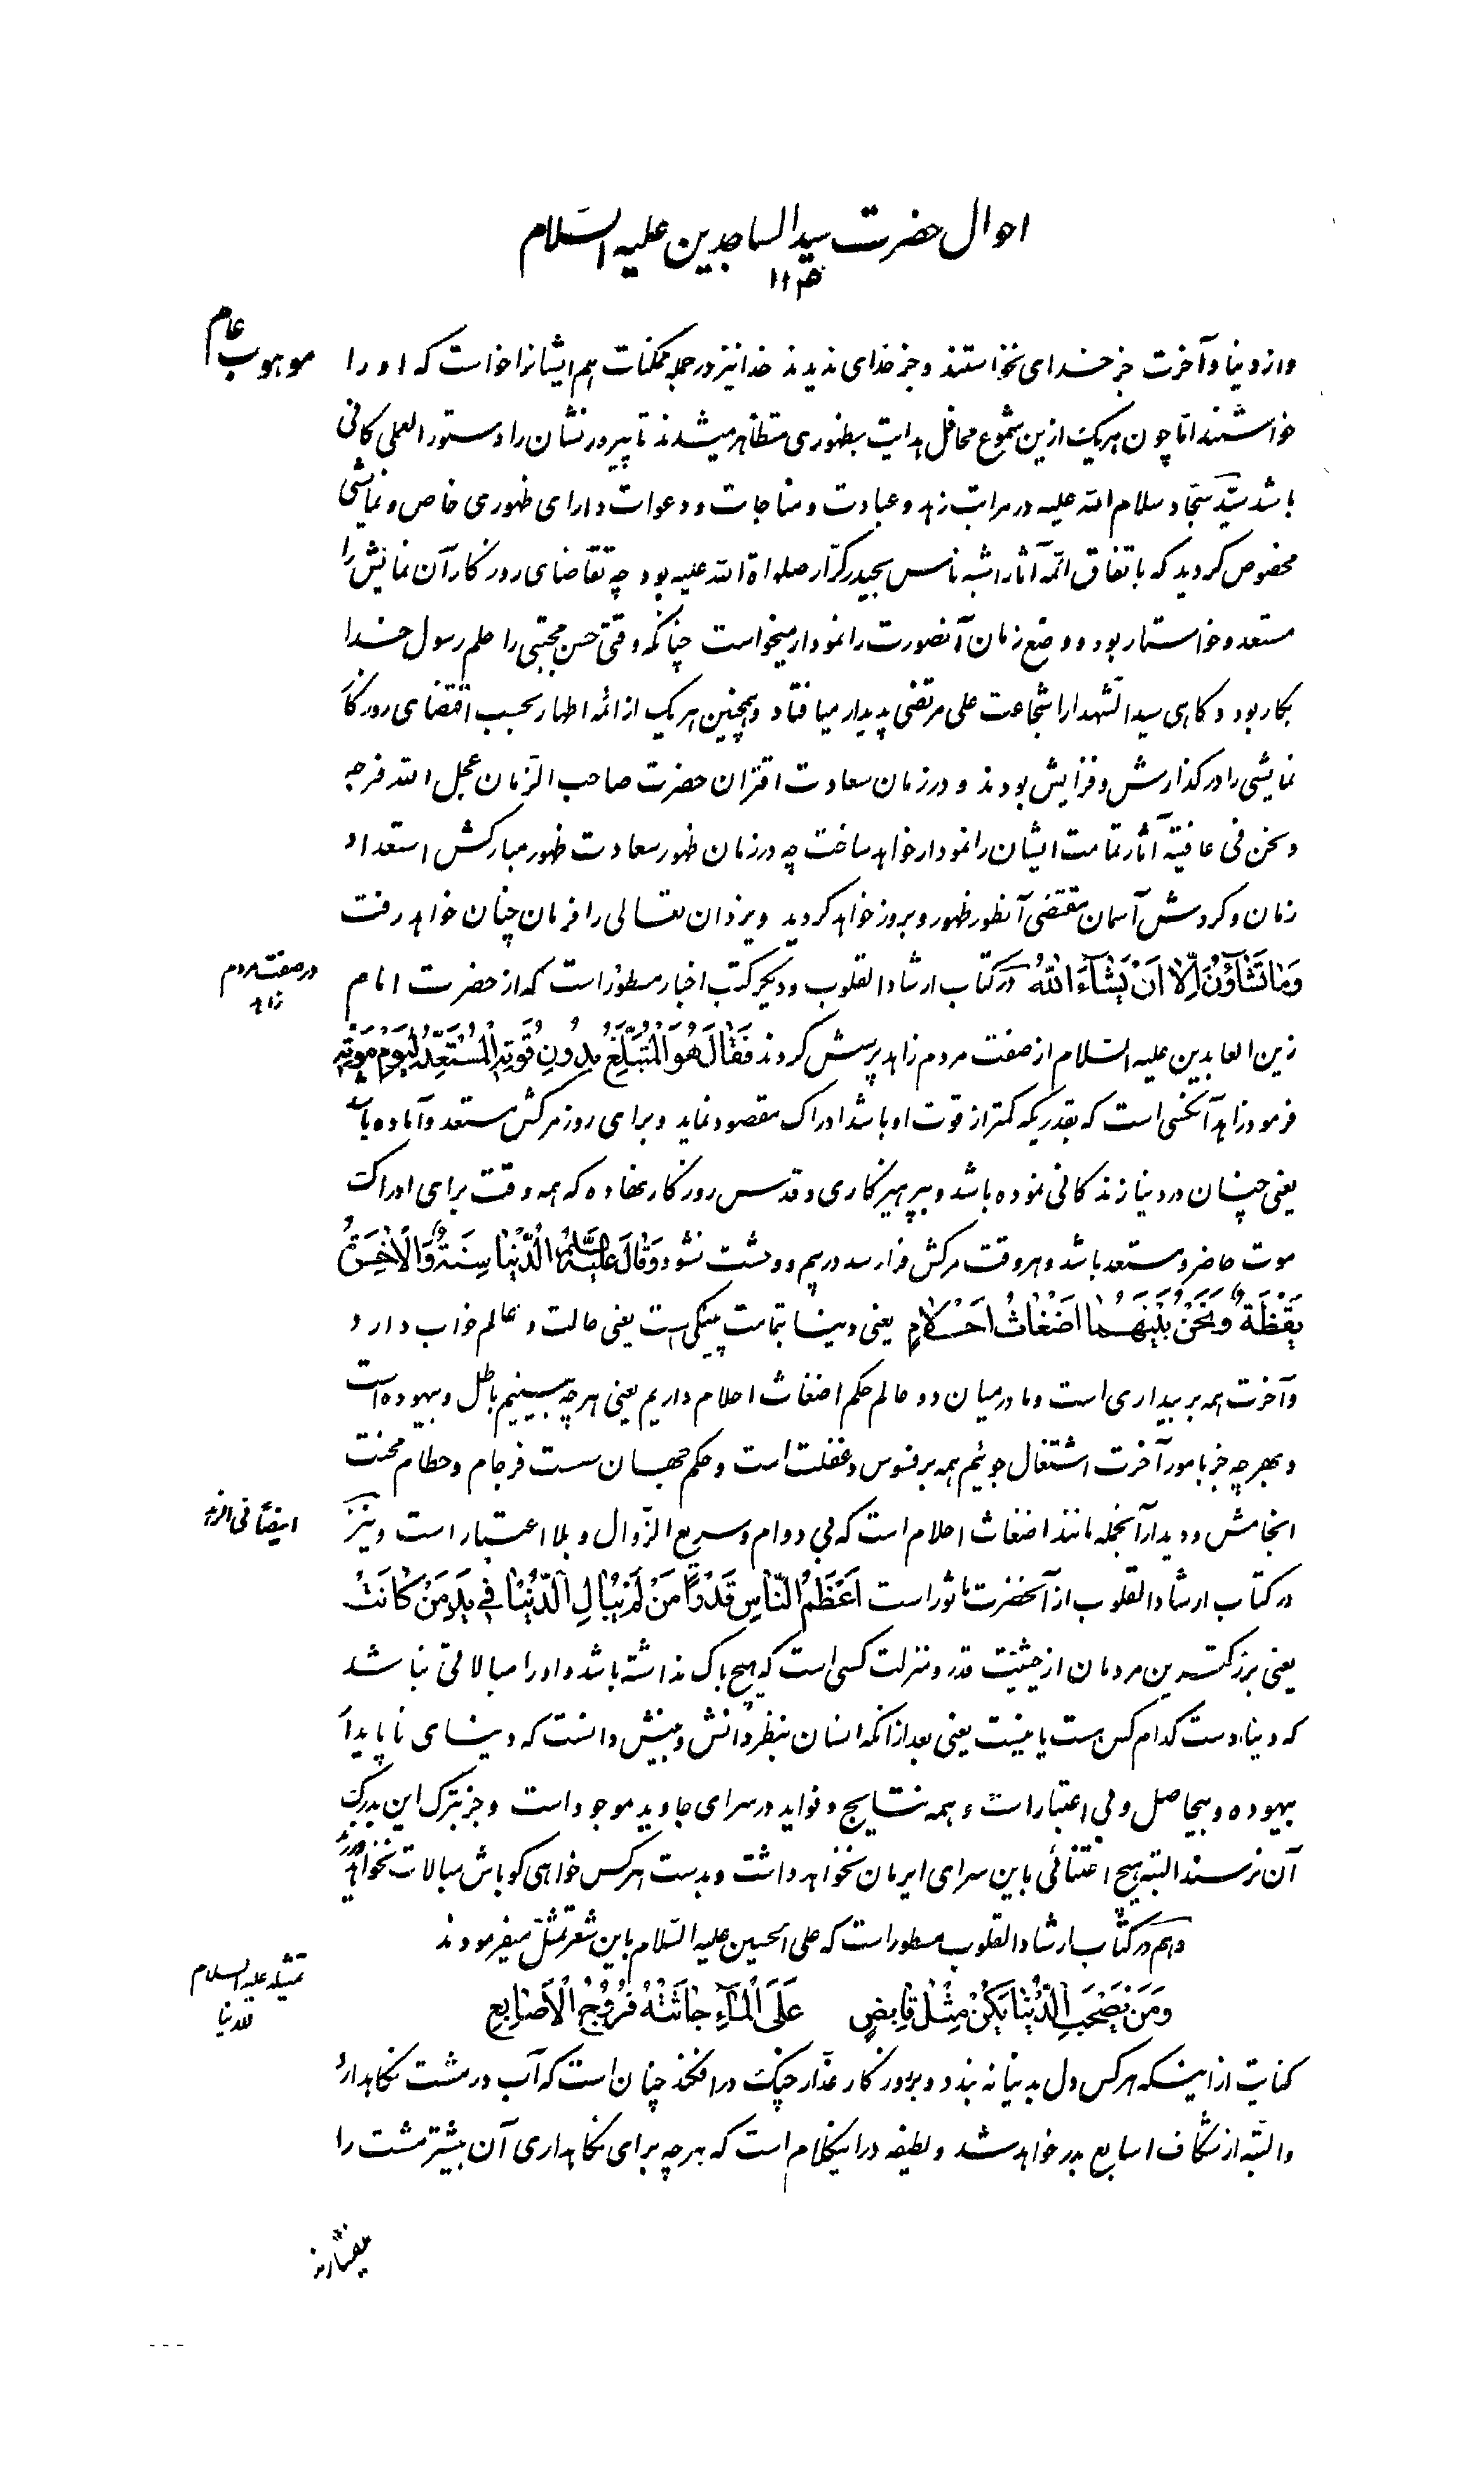 احوال حضرت سید الساجدین علیه السّلام
موهوب عام
واز دنیا و آخرت جز خدای نخواستند و جز خدای ندیدند خدا نیز در جمله ممکنات هم ایشانرا خواست که او را
خواستند امّا چون هریک ازین شموع محافل هدایت بظهوری متظاهر میشدند تا پیرو رنشان را دستور العملی کافی
باشد سیّد سجّاد سلام الله علیه در مراتب زهد و عبادت و مناجات و دعوات دارای ظهوری خاص و نمایشی
مخصوص کردید که باتفاق ائمّه آثار اشبه ناس بحیدر کرّار صلواة الله علیه بود چه تقاضای روزکار آن نمایش را
مستعد و خواستار بود و وضع زمان آنصورت را نمودار میخواست چنانکه وقتی حسن مجتبی را حلم رسول خدا
بکار بود و کاهی سید الشهدا را شجاعت علی مرتضی پدیدار میافتاد و همچنین هریک از ائمه اطهار بحسب اقتضای روزکار
نمایشی را در کذارش و فزایش بودند و در زمان سعادت اقتران حضرت صاحب الزّمان عجل الله فرجه
و نحن فی عافیة آثار تمامت ایشان را نمودار خواهد ساخت چه در زمان ظهور سعادت ظهور مبارکش استعداد
زمان و کردش آسمان مقتضی آنطور ظهور و بروز خواهد کردید و یزدان تعالی را فرمان چنان خواهد رفت
وَمَا تَشَاؤُنَ اِلّا اَنْ یَشَاءَ اللهُ در کتاب ارشاد القلوب و دیکر کتب اخبار مسطور است که از حضرت امام
در صفت مردم
زاهد
زین العابدین علیه السّلام از صفت مردم زاهد پرسش کردند فَقَالَ هُوَ الْمُتَبَلِّغُ بِدُونِ قُوتِهِ الْمُسْتَعِدُّ لِیَوْمِ مَوْتِهِ
فرمود زاهد آنکسی است که بقدریکه کمتر از قوت او باشد ادراک مقصود نماید و برای روز مرکش مستعد و آماده باشد
یعنی چنان در دنیا زندکانی نموده باشد و بپرهیزکاری و قدس روزکار نهاده که همه وقت برای ادراک
موت حاضر و مستعد باشد و هر وقت مرکش فرا رسد در بیم و وحشت نشود وَقَالَ عَلَیْهِ السَّلَامُ الدُّنْیَا سِنَةٌ وَالْآخِرَةُ
یَقْظَةٌ وَنَحْنُ بَیْنَهُمَا اَضْغَاثُ اَحْلَامٍ یعنی دنیا بتمامت پینکی است یعنی حالت و عالم خواب دارد و
وآخرت همه بر بیداری است و ما در میان دو عالم حکم اضغاث احلام داریم یعنی هر چه ببینیم باطل و بیهوده است
و بهر چه جز بامور آخرت اشتغال جوئیم همه بر فسوس و غفلت است و حکم جهان سست فرجام و حطام محنت
انجامش و دیدار آنجمله مانند اضغاث احلام است که بی دوام و سریع الزّوال و بلا اعتبار است و نیز
ایضاً فی الزهد
در کتاب ارشاد القلوب از آنحضرت ماثور است اَعْظَمُ النَّاسِ قَدْرًا مَنْ لَمْ یُبَالِ الدُّنْیَا فِی یَدِ مَنْ کَانَتْ
یعنی بزرکترین مردمان از حیثیّت قدر و منزلت کسی است که هیچ باک نداشته باشد و او را مبالاتی نباشد
که دنیا بدست کدام کس هست یا نیست یعنی بعد از آنکه انسان بنظر دانش و بینش دانست که دنیای ناپایدار
بیهوده و بیحاصل و بی اعتبار است و همه نتایج و فواید در سرای جاوید موجود است و جز بترک این بدرک
آن نرسند البته هیچ اعتنائی باین سرای ایرمان نخواهد داشت و بدست هر کس خواهی کو باش مبالات نخواهد ورزید
وهم در کتاب ارشاد القلوب مسطور است که علی بن الحسین علیه السّلام باین شعر تمثّل میفرمودند
تمثیله علیه السلام
للدنیا
وَمَنْ یَصْحَبِ الدُّنْیَا یَکُنْ مِثْلَ قَابِضٍ عَلَی الْمَاءِ خَانَتْهُ فُرُوجُ الْاَصَابِعِ
کنایت از اینکه هر کس دل بدنیا نهد و بروزکار غدّار چنک در افکند چنان است که آب در مشت نکاهدارد
والبته از شکاف اصابع بدر خواهد شد و لطیفه در اینکلام است که هر چه برای نکاهداری آن بیشتر مشت را
بیفشارند